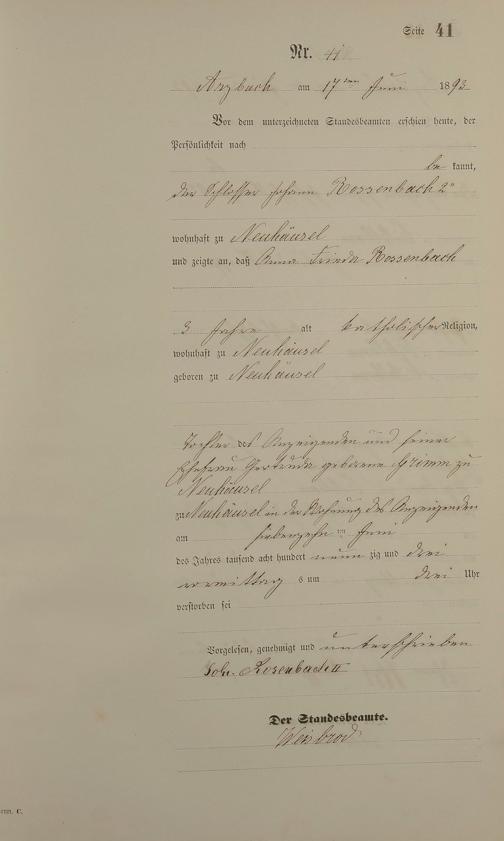 Seite 41
Nr. 41
Arzbach am 17ten Juni 1893
Vor dem unterzeichneten Standesbeamten erschien heute, der
Persönlichkeit nach
be kannt,
der Schlosser Johann Rossenbach 2r
wohnhaft zu Neuhäusel
und zeigte an, daß Anna Frieda Rossenbach
3 Jahre alt katholischer Religion,
wohnhaft zu Neuhäusel
geboren zu Neuhäusel
Tochter des Anzeigenden und seiner
Ehefrau Gertruda geborene Grimm zu
Neuhäusel
zu Neuhäusel in der Wohnung des Anzeigenden
am siebenzehnten Juni
des Jahres tausend acht hundert neun zig und drei
vormittag s um drei Uhr
verstorben sei
Vorgelesen, genehmigt und unterschrieben
Joh. Rosenbach II
Der Standesbeamte.
Weisbrod